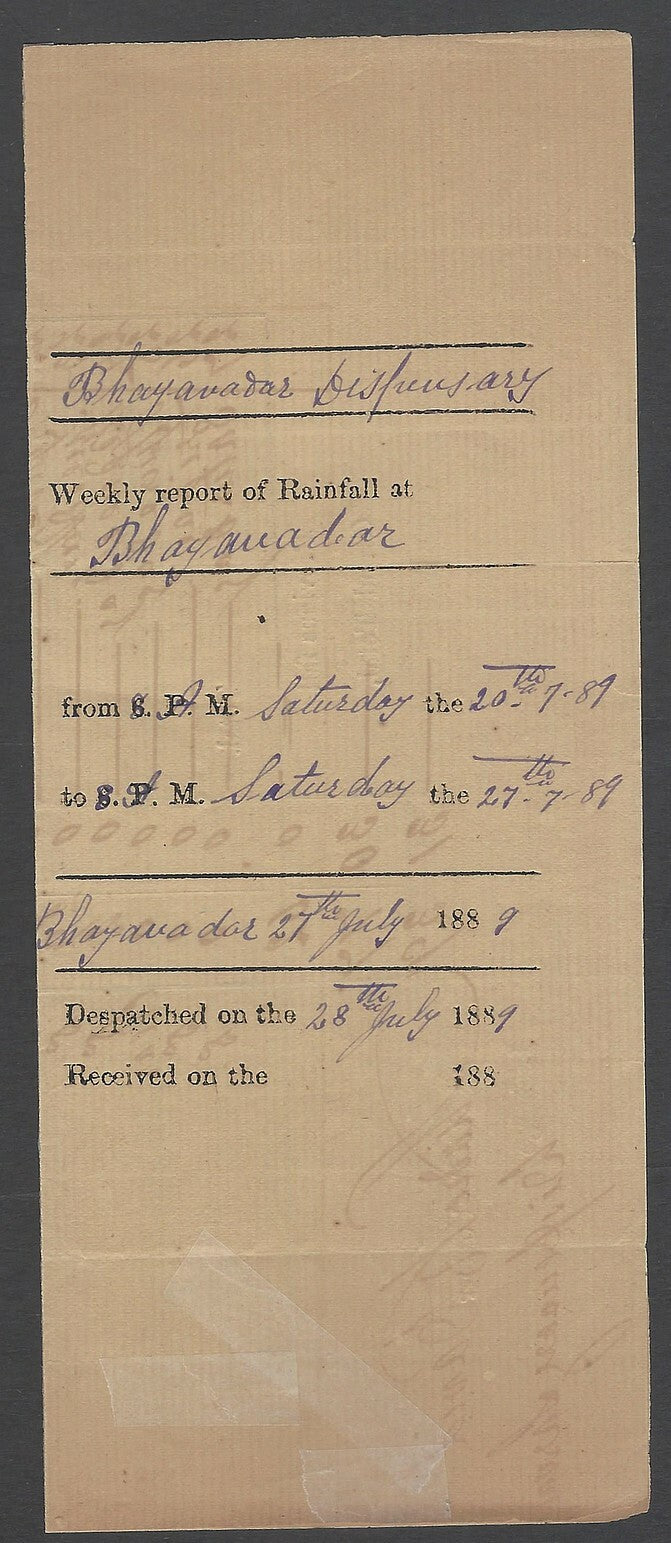 Bhayavadar Dispensary
Weekly report of Rainfall at
Bhayavadar
from 8. A. M. Saturday the 20th 7-89
to 8. A. M. Saturday the 27th 7-89
Bhayavadar 27th July 1889
Despatched on the 28th July 1889
Received on the 188